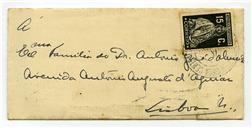 À
Exma Familia do Dr. António José d'Almeida
Avenida António Augusto d'Aguiar
Lisboa N.
15 C.